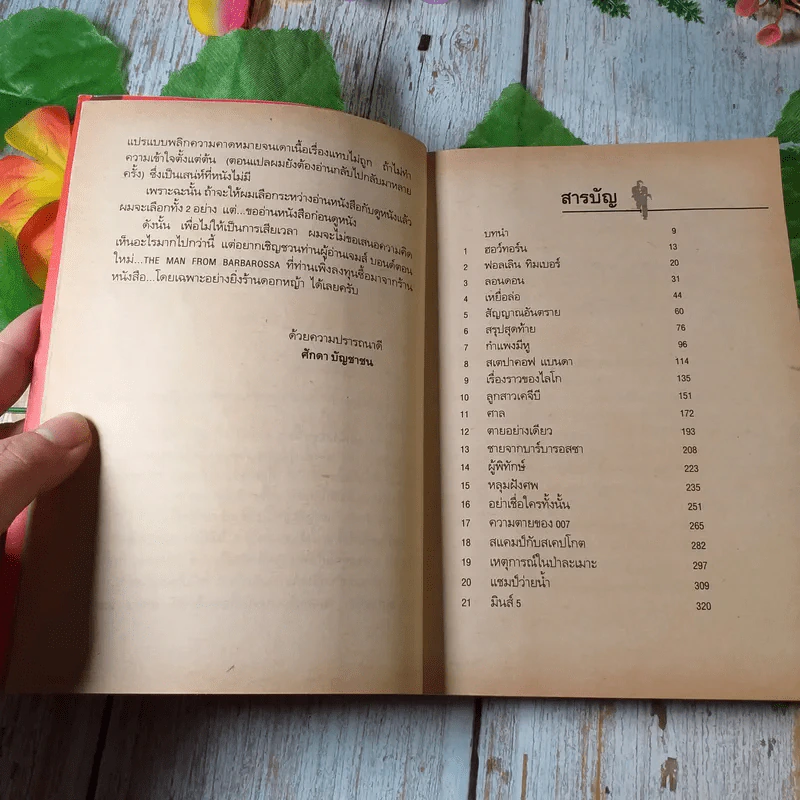 แปรแบบพลิกความคาดหมายจนเดาเนื้อเรื่องแทบไม่ถูก ถ้าไม่ทำ
ความเข้าใจตั้งแต่ต้น (ตอนแปลผมยังต้องอ่านกลับไปกลับมาหลาย
ครั้ง) ซึ่งเป็นเสน่ห์ที่หนังไม่มี
เพราะฉะนั้น ถ้าจะให้ผมเลือกระหว่างอ่านหนังสือกับดูหนังแล้ว
ผมจะเลือกทั้ง 2 อย่าง แต่...ขออ่านหนังสือก่อนดูหนัง
ดังนั้น เพื่อไม่ให้เป็นการเสียเวลา ผมจะไม่ขอเสนอความคิด
เห็นอะไรมากไปกว่านี้ แต่อยากเชิญชวนท่านผู้อ่านเจมส์ บอนด์ตอน
ใหม่...THE MAN FROM BARBAROSSA ที่ท่านเพิ่งลงทุนซื้อมาจากร้าน
หนังสือ...โดยเฉพาะอย่างยิ่งร้านดอกหญ้า ได้เลยครับ
ด้วยความปรารถนาดี
ศักดา บัญชาชน
สารบัญ
บทนำ 9
1 ฮอว์ทอร์น 13
2 ฟอลเลิน ทิมเบอร์ 20
3 ลอนดอน 31
4 เหยื่อล่อ 44
5 สัญญาณอันตราย 60
6 สรุปสุดท้าย 76
7 กำแพงมีหู 96
8 สเตปาคอฟ แบนดา 114
9 เรื่องราวของไลโก 135
10 ลูกสาวเคจีบี 151
11 ศาล 172
12 ตายอย่างเดียว 193
13 ชายจากบาร์บารอสซา 208
14 ผู้พิทักษ์ 223
15 หลุมฝังศพ 235
16 อย่าเชื่อใครทั้งนั้น 251
17 ความตายของ 007 265
18 สแคมป์กับสเคปโกต 282
19 เหตุการณ์ในป่าละเมาะ 297
20 แชมป์ว่ายน้ำ 309
21 มินส์ 5 320